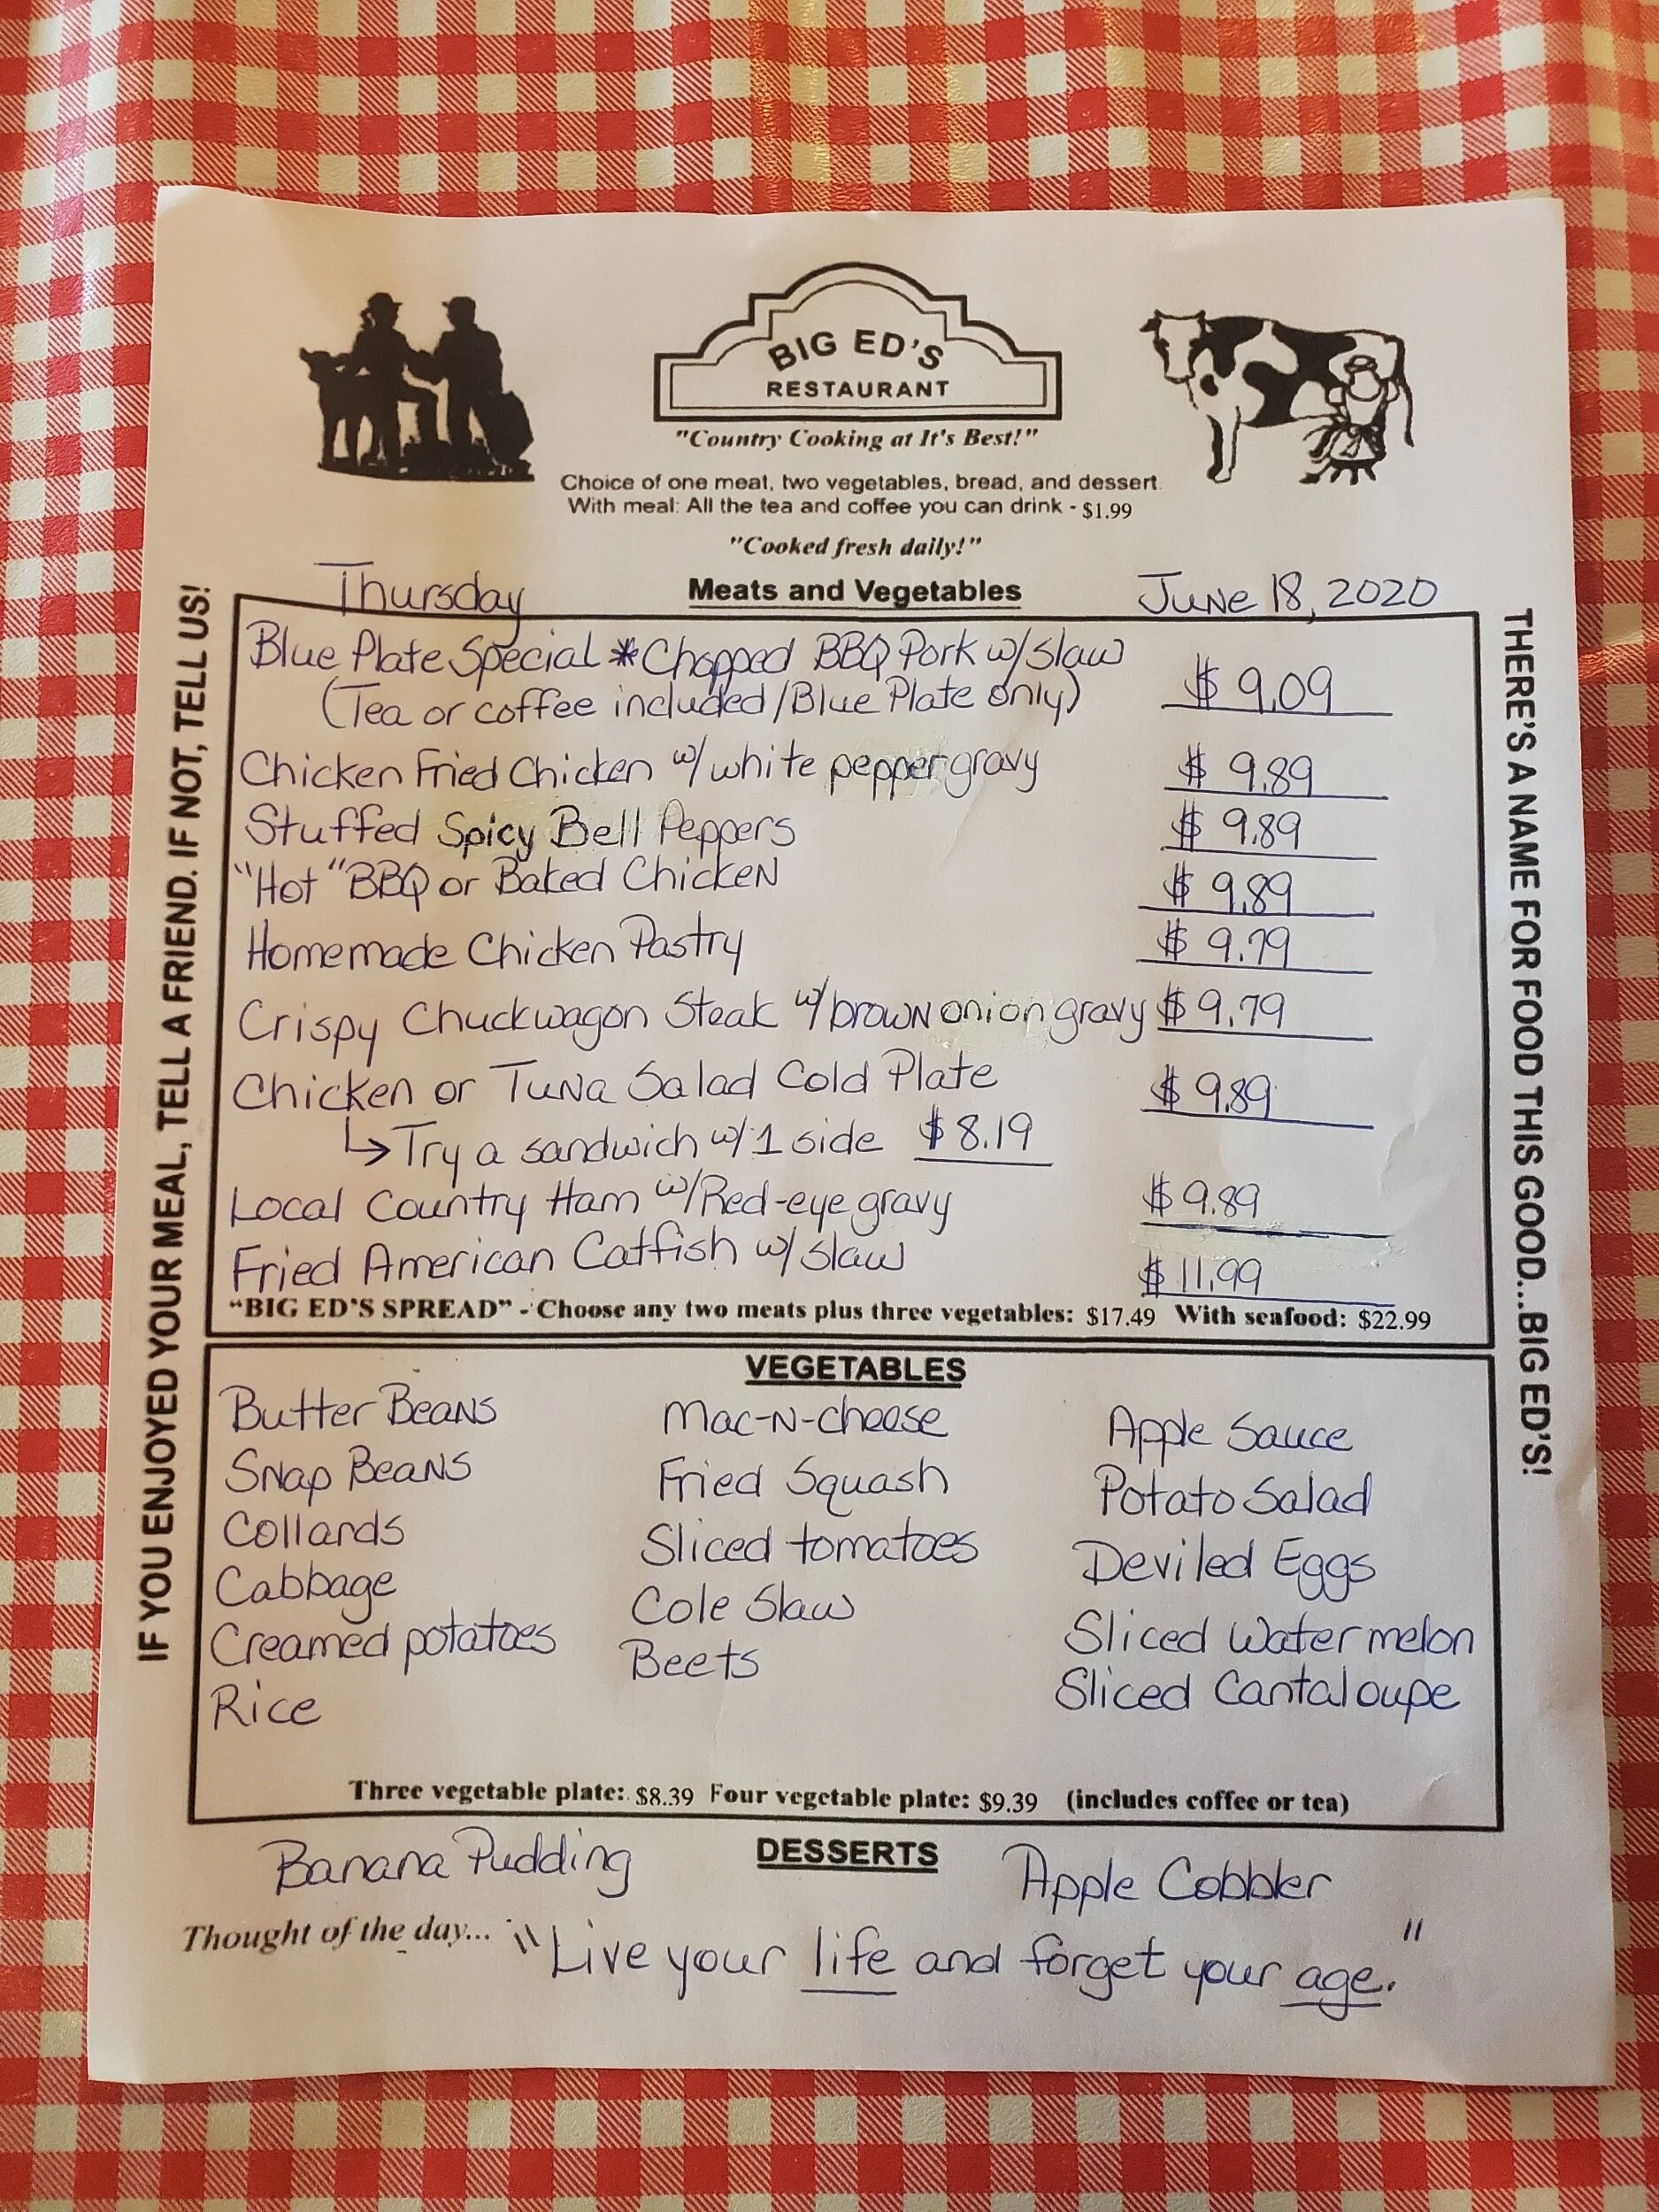 BIG ED'S
RESTAURANT
"Country Cooking at It's Best!"
Choice of one meat, two vegetables, bread, and dessert.
With meal: All the tea and coffee you can drink - $1.99
"Cooked fresh daily!"
Thursday Meats and Vegetables June 18, 2020
IF YOU ENJOYED YOUR MEAL, TELL A FRIEND. IF NOT, TELL US!
Blue Plate Special *Chopped BBQ Pork w/slaw
(Tea or coffee included/Blue Plate only) $ 9.09
Chicken Fried Chicken w/white pepper gravy $ 9.89
Stuffed Spicy Bell Peppers $ 9.89
"Hot" BBQ or Baked Chicken $ 9.89
Homemade Chicken Pastry $ 9.79
Crispy Chuckwagon Steak w/brown onion gravy $ 9.79
Chicken or Tuna Salad Cold Plate $ 9.89
↳ Try a sandwich w/1 side $8.19
Local Country Ham w/Red-eye gravy $ 9.89
Fried American Catfish w/slaw $ 11.99
"BIG ED'S SPREAD" - Choose any two meats plus three vegetables: $17.49 With seafood: $22.99
THERE'S A NAME FOR FOOD THIS GOOD...BIG ED'S!
VEGETABLES
Butter Beans Mac-N-cheese Apple Sauce
Snap Beans Fried Squash Potato Salad
Collards Sliced tomatoes Deviled Eggs
Cabbage Cole Slaw Sliced Watermelon
Creamed potatoes Beets Sliced Cantaloupe
Rice
Three vegetable plate: $8.39 Four vegetable plate: $9.39 (includes coffee or tea)
Banana Pudding DESSERTS Apple Cobbler
Thought of the day... "Live your life and forget your age."